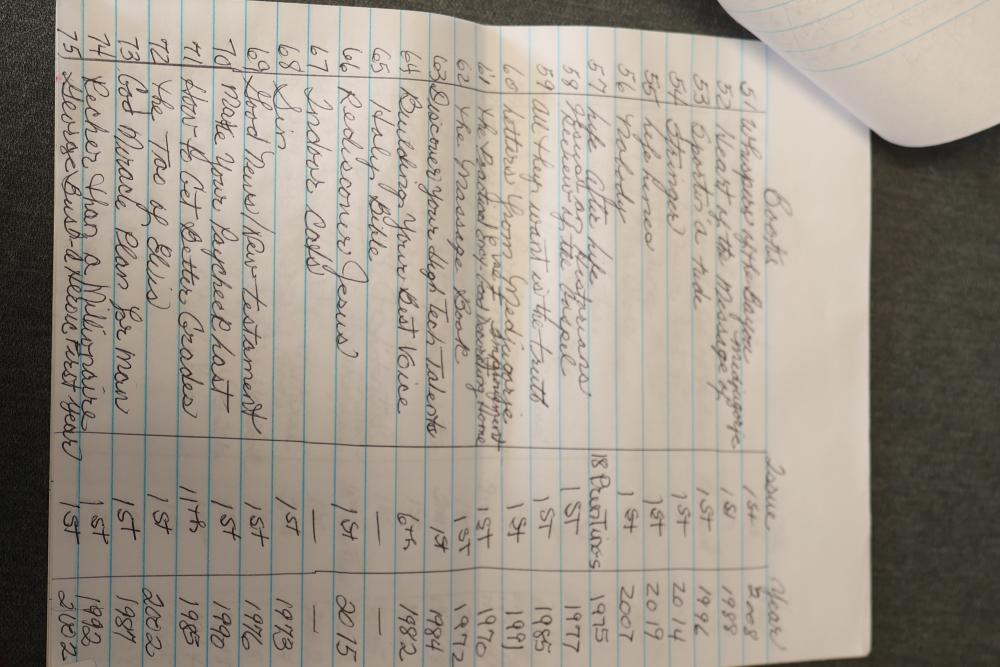 Books Issue Year
51 Whispers of the Bayou 1st 2008
52 Heart of the Message of Medjugorje 1st 1988
53 Against a tide 1st 1996
54 Stringer 1st 2014
55 life lines 1st 2019
56 Nobody 1st 2007
57 life after life 18 Printings 1975
58 Manual of Christians Review of the Thool 1st 1977
59 All they want is the truth 1st 1985
60 letters from Medjugorje 1st 1991
61 The Practical Encyclopedia 1st 1970
62 The Massage Book 1st 1972
63 Discover your High Tech Talents 1st 1984
64 Building Your Best Voice 6th 1982
65 Holy Bible — —
66 Rediscover Jesus 1st 2015
67 Indoor Cats — —
68 Sin 1st 1973
69 Good News/New testament 1st 1976
70 Make Your Paycheck last 1st 1990
71 How to Get Better Grades 11th 1985
72 The Tao of Elvis 1st 2002
73 God Miracle Plan for man 1st 1987
74 Richer than a Millionaire 1st 1992
75 George Bush First Year 1st 2002